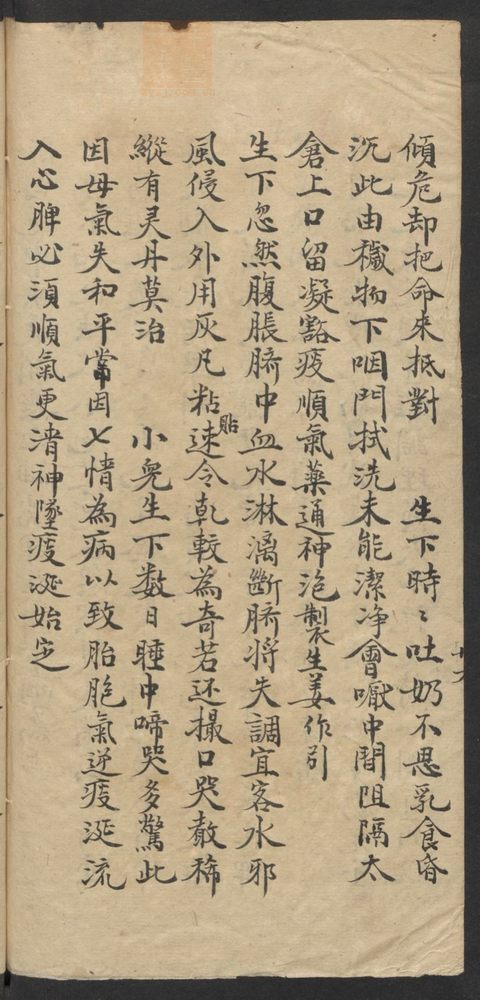 傾危却把命來抵對　生下時〻吐奶不思乳食昏
沉此由穢物下咽門拭洗未能潔净會噘中間阻隔太
倉上口留凝豁痰順氣藥通神泡製生姜作引
生下忽然腹脹臍中血水淋漓斷臍將失調宜客水邪
風侵入外用灰凡粘貼速令乾較為奇若还撮口哭教稀
縱有灵丹莫治　小兒生下数日睡中啼哭多驚此
因母氣失和平當因七情為病以致胎胞氣逆痰涎流
入心脾必須順氣更清神墜痰涎始定